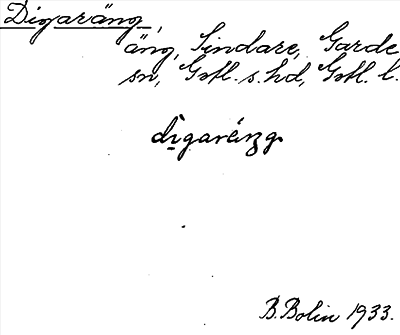 Digaräng,
äng, Sindare, Garde
sn, Gotl. s. hd, Gotl. l.
digaräŋg
B. Bolin 1933.